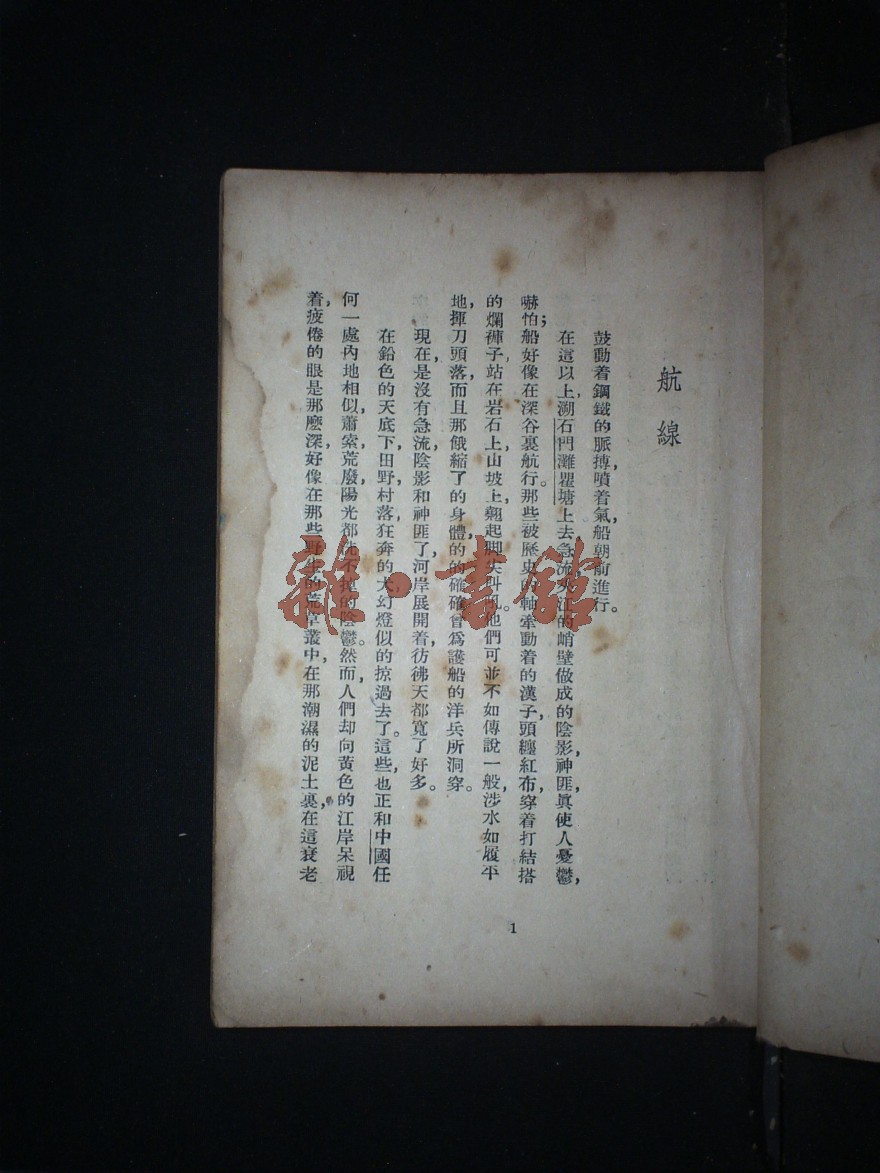 航線
鼓動着鋼鐵的脈搏，噴着氣，船朝前進行。
在這以上，溯石門灘瞿塘上去，急流，夾江的峭壁做成的陰影，神匪，眞使人憂鬱，
嚇怕；船好像在深谷裏航行。那些被歷史的軸牽動着的漢子，頭纏紅布，穿着打結搭
的爛褲子，站在岩石上，山坡上，翹起脚尖。他們可並不如傳說一般，涉水如履平
地，揮刀頭落，而且那餓縮了的身體，的的確確曾爲護船的洋兵所洞穿。
現在是沒有急流，陰影和神匪了，河岸展開着，彷彿天都寬了好多。
在鉛色的天底下，田野，村落，狂奔的犬，幻燈似的掠過去了。這些，也正和中國任
何一處內地相似，蕭索，荒廢，陽光都洗不掉的陰鬱。然而，人們却向黃色的江岸呆視
着，疲倦的眼是那麽深，好像在那些野生的荒草叢中，在那潮濕的泥土裏，在這衰老
1
雜·書館